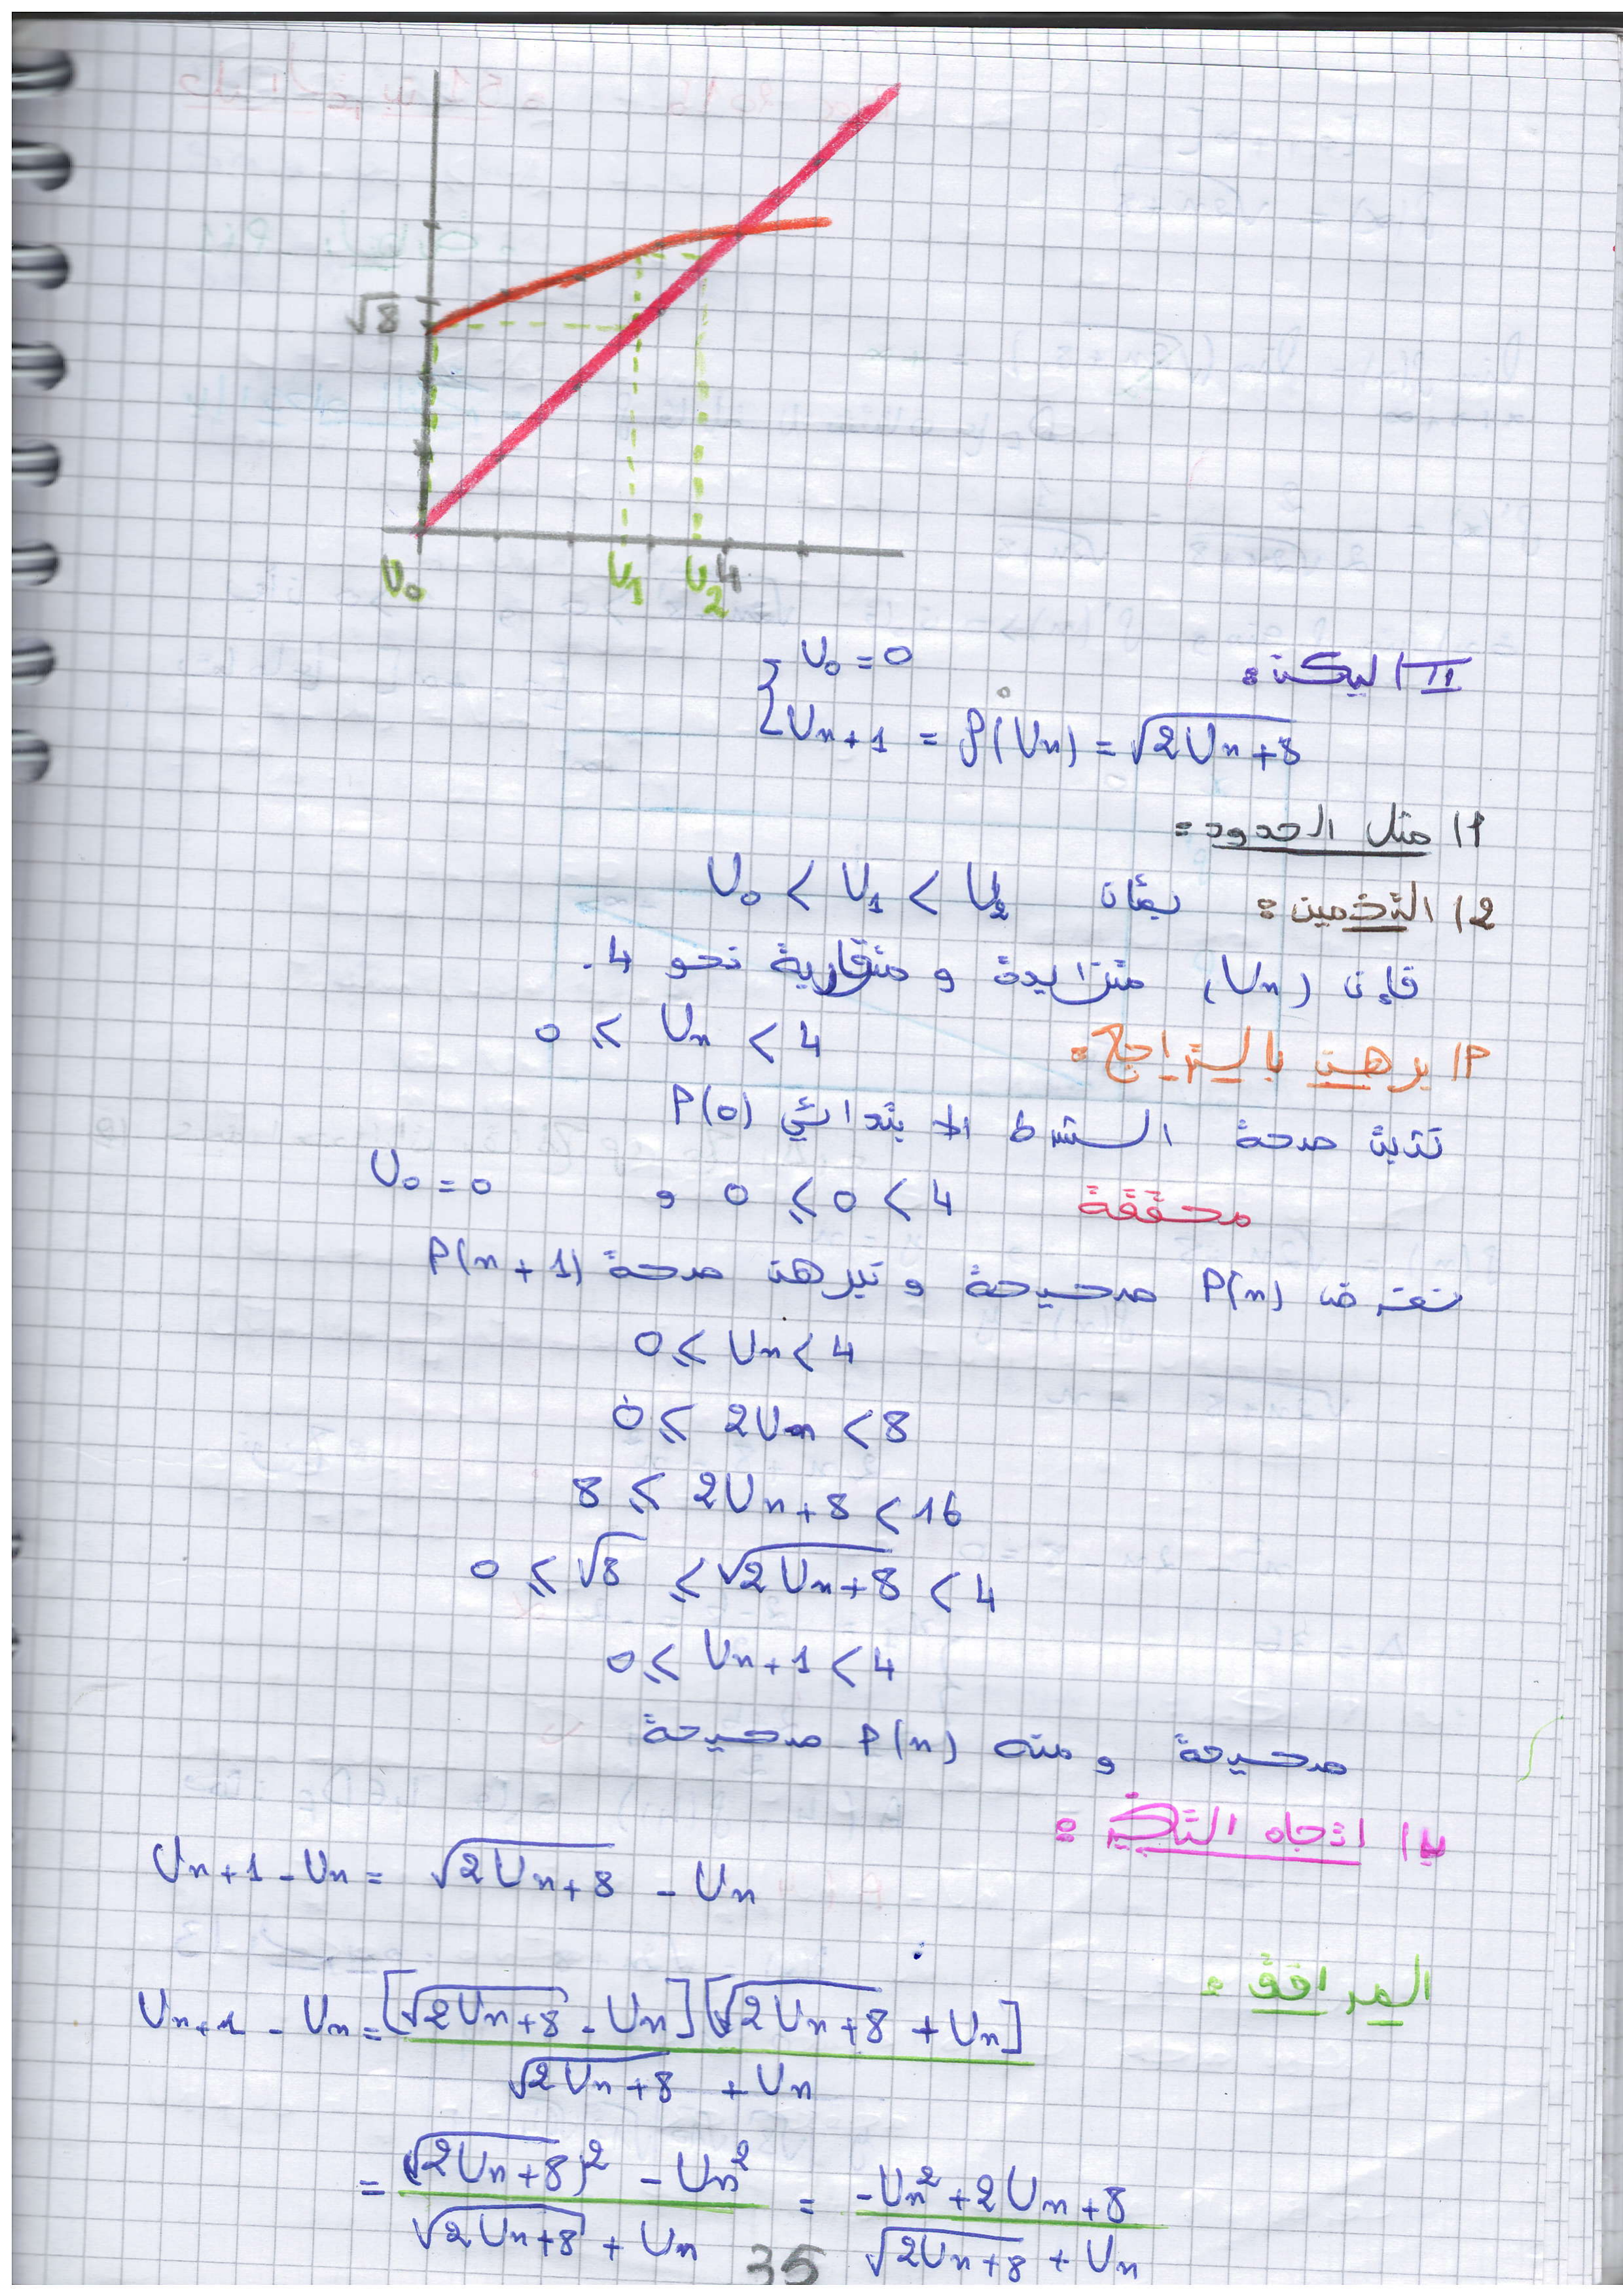 √8
U₀ U₁ U₂ 4
II / ليكن:
{ U₀ = 0
Uₙ₊₁ = f(Uₙ) = √(2Uₙ+8)
1/ مثل الحدود:
2/ التخمين: بمأن U₀ < U₁ < U₂
فإن (Uₙ) متزايدة و متقاربة نحو 4.
P/ برهن بالتراجع: 0 ⩽ Uₙ < 4
صحة الشرط الابتدائي P(0)
محققة 0 ⩽ 0 < 4 و U₀ = 0
نفترض P(n) صحيحة و نبرهن صحة P(n+1)
0 ⩽ Uₙ < 4
0 ⩽ 2Uₙ < 8
8 ⩽ 2Uₙ+8 < 16
0 ⩽ √8 ⩽ √(2Uₙ+8) < 4
0 ⩽ Uₙ₊₁ < 4
صحيحة و منه P(n) صحيحة
ب/ اتجاه التغير:
Uₙ₊₁ - Uₙ = √(2Uₙ+8) - Uₙ
المرافق:
Uₙ₊₁ - Uₙ = [√(2Uₙ+8) - Uₙ][√(2Uₙ+8) + Uₙ] / (√(2Uₙ+8) + Uₙ)
= ((√(2Uₙ+8))² - Uₙ²) / (√(2Uₙ+8) + Uₙ) = (-Uₙ²+2Uₙ+8) / (√(2Uₙ+8) + Uₙ)
35